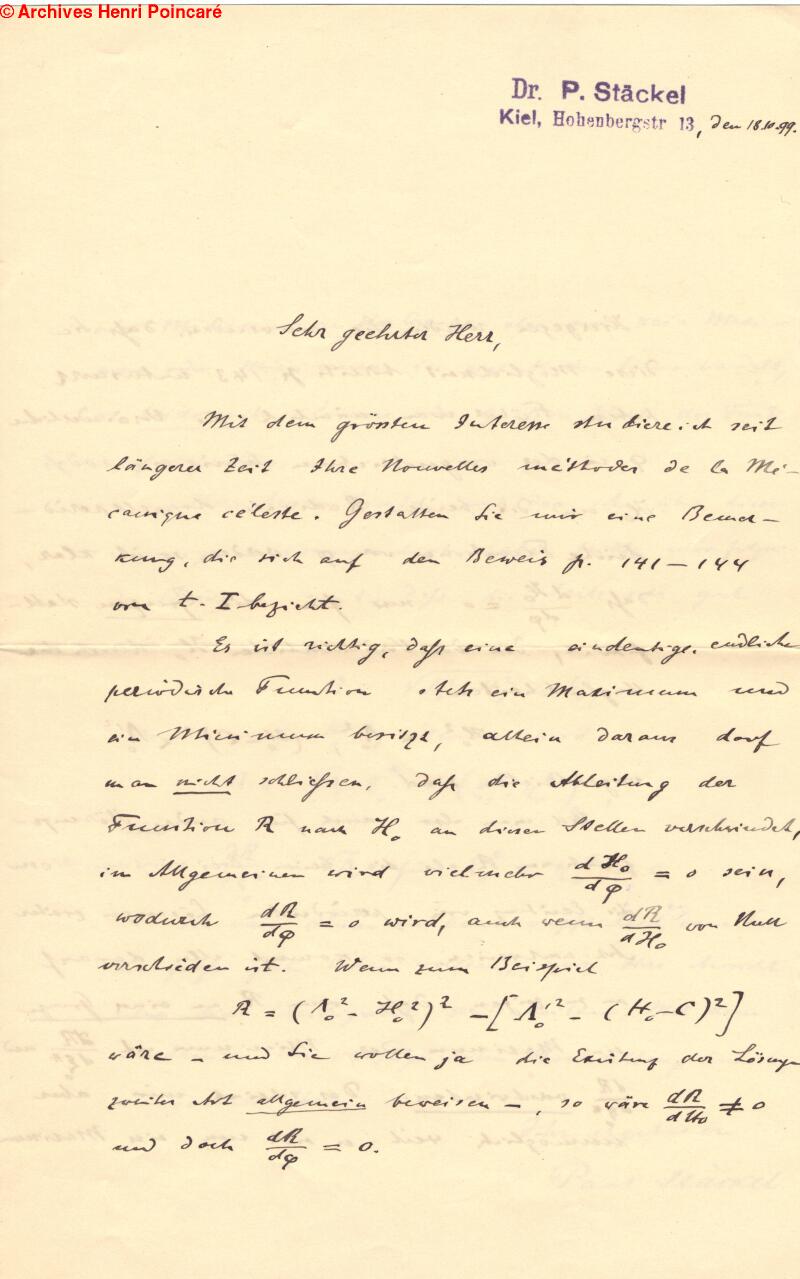 © Archives Henri Poincaré
Dr. P. Stäckel
Kiel, Hohenbergstr 13, den 18.10.99.
Sehr geehrter Herr,
Mit dem grössten Interesse studiere ich seit
längerer Zeit Ihre Nouvelles méthodes de la Mé-
canique céleste. Gestatten Sie mir eine Bemer-
kung, die sich auf den Beweis p. 141–144
von t. I bezieht.
Es ist richtig, daß eine eindeutige, endliche
periodische Function stets ein Maximum und
ein Minimum besitzt, allein daraus darf
man nicht schließen, daß die Ableitung der
Function R nach H₀ an diesen Stellen verschwindet,
im Allgemeinen wird vielmehr dH₀/dφ = 0 sein,
wodurch dR/dφ = 0 wird, auch wenn dR/dH₀ von Null
verschieden ist. Wenn zum Beispiel
R = (Λ₀² - H₀²)² - [Λ₀'² - (H₀-C)²]
wäre – und Sie wollen ja die Existenz der Lösungen
zweiter Art allgemein beweisen –, so wäre dR/dH₀ ≠ 0
und doch dR/dφ = 0.